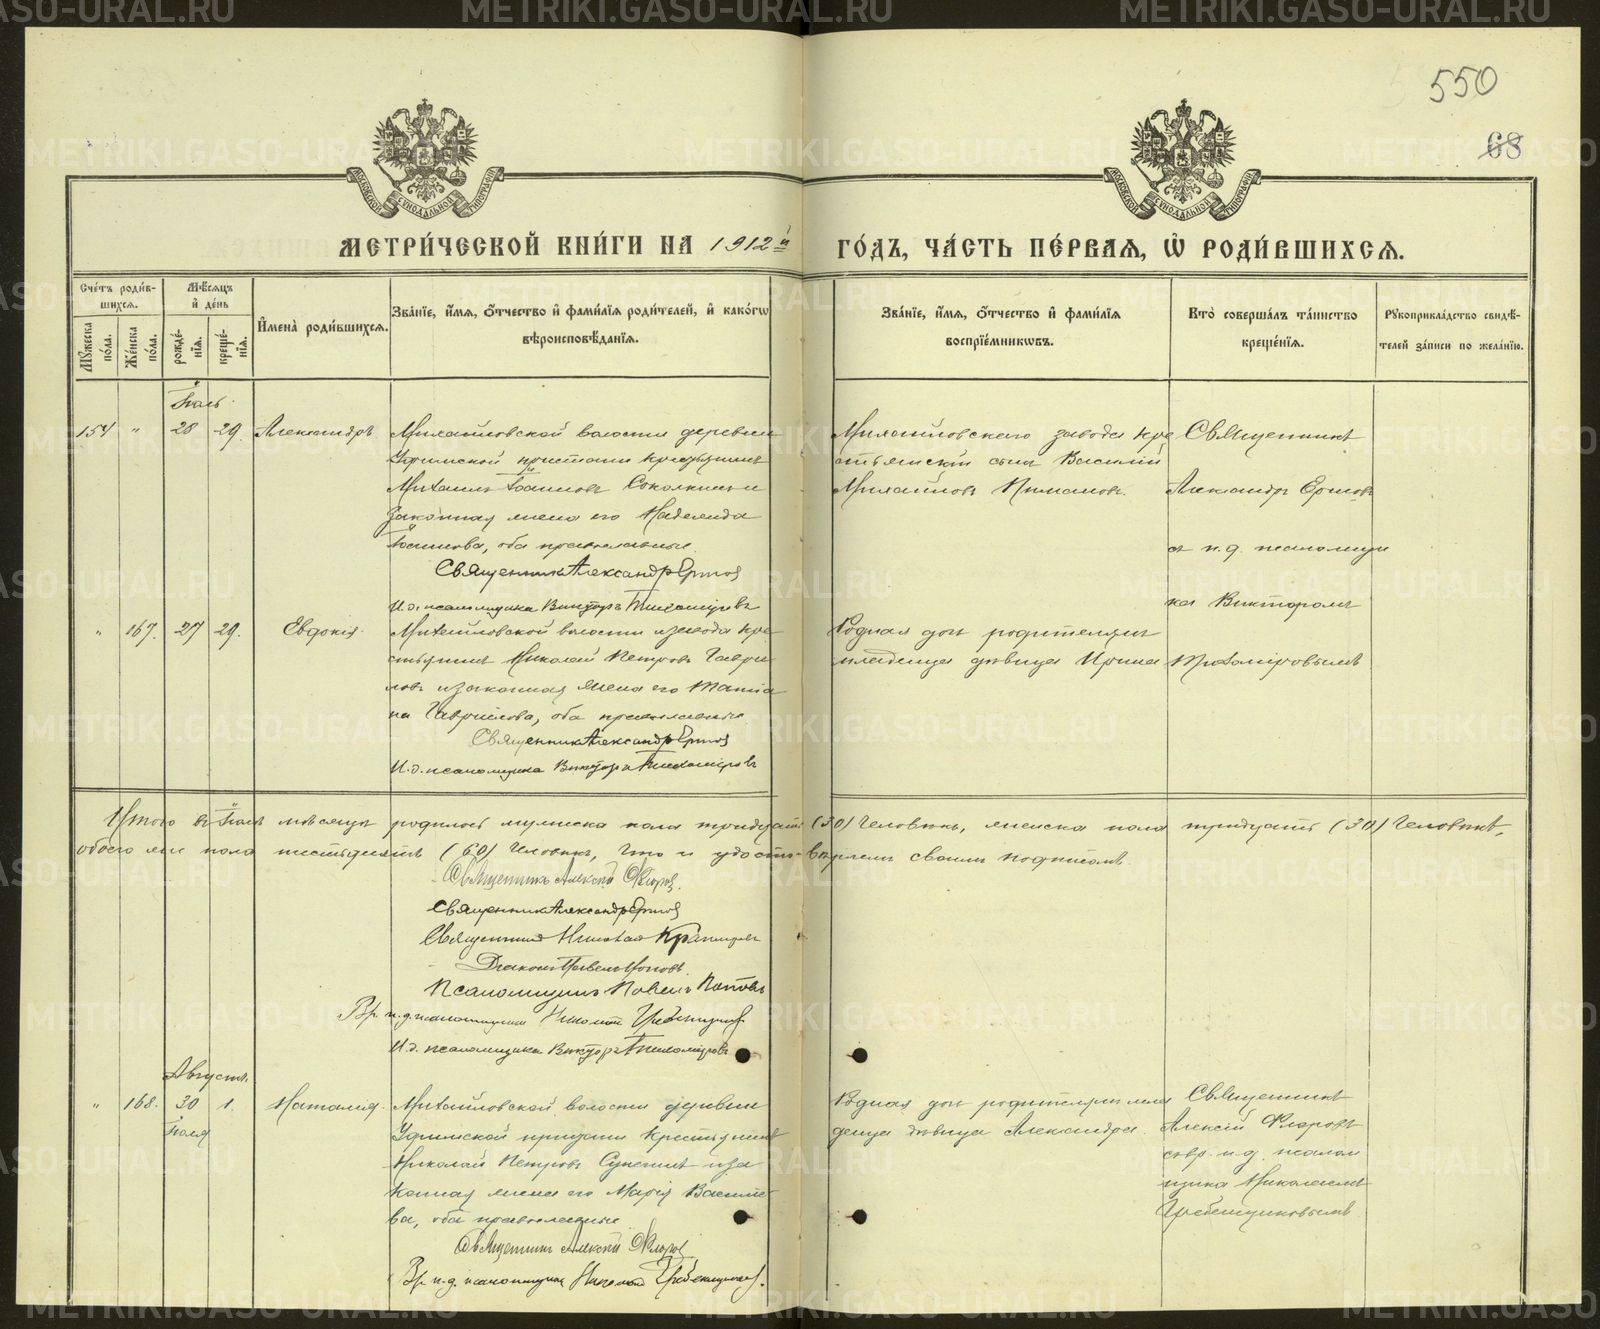 550
68
МЕТРИ́ЧЕСКОЙ КНИ́ГИ НА 1912й ГО́ДЪ, ЧА́СТЬ ПЕ́РВАЯ, Ѡ РОДИ́ВШИХСЯ.
Сче́тъ роди́в-
шихся.
Мѣ́сяцъ
и де́нь
Му́жеска по́ла.
Же́нска по́ла.
рожде́-
нїя.
креще́-
нїя.
Имена̀ роди́вшихся.
Зва́нїе, и́мя, о́тчество и фами́лїя роди́телей, и како́гѡ
вѣроисповѣ́данїя.
Зва́нїе, и́мя, о́тчество и фами́лїя
воспрїе́мникѡвъ.
Кто̀ соверша́лъ та́инство
креще́нїя.
Рукоприкла́дство свидѣ́-
телей за́писи по жела́нїю.
Іюль
154 " 28 29. Александръ
Михайловской волости деревни
Уфимской пристани крестьянинъ
Михаилъ Іоанновъ и
законная жена его Надежда
Іоаннова, оба православные.
Священникъ Александръ Ершов
И.д. псаломщика Викторъ Тихомировъ
Михайловскаго завода кре
стьянскій сынъ Василій
Михайловъ Пимановъ.
Священникъ
Александръ Ершовъ
съ и.д. псаломщи
ка Викторомъ
Тихомировымъ
" 167. 27 29. Евдокія.
Михайловской волости и завода кре
стьянинъ Николай Петровъ Гаври
ловъ и законная жена его Татіа
на Гаврилова, оба православные.
Священникъ Александръ Ершов
И.д. псаломщика Викторъ Тихомировъ
Родная дочь родителямъ
младенца дѣвица Ирина
Итого въ Іюлѣ мѣсяцѣ родилось мужеска пола тридцать (30) человѣкъ, женска пола тридцать (30) человѣкъ,
обоего же пола шестьдесятъ (60) человѣкъ, что и удостовѣряемъ своимъ подписомъ.
Священникъ Алексій Флоров.
Священникъ Александръ Ершов
Священникъ Николай
Діаконъ Павелъ Поповъ.
Псаломщикъ Павелъ Поповъ
Вр. и.д. псаломщика Николай Гребенщиков.
И.д. псаломщика Викторъ Тихомировъ
Августъ.
" 168. 30 1. Наталія.
Іюля
Михайловской волости деревни
Уфимской пристани крестьянинъ
Николай Петровъ и за
конная жена его Марія Василье
ва, оба православные.
Священникъ Алексій Флоров
Вр. и.д. псаломщика Николай Гребенщиков.
Родная дочь родителямъ мла
денца дѣвица Александра.
Священникъ
Алексій Флоровъ
съ вр. и.д. псалом
щика Николаемъ
Гребенщиковымъ
METRIKI.GASO-URAL.RU